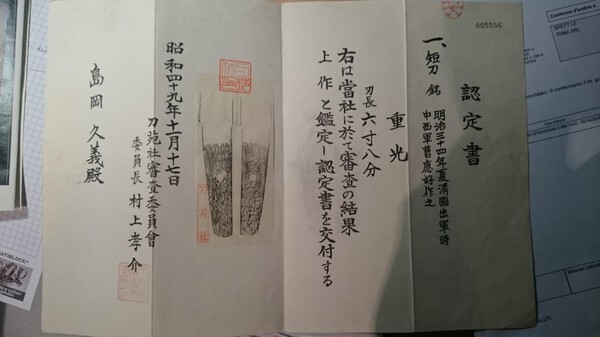 005556
認定書
一、短刀 銘 明治三十四年夏清國出軍時
中西軍曹應好作之
重光
刃長 六寸八分
右は當社に於て審査の結果
上作と鑑定し認定書を交付する
昭和四十九年十一月十七日
刀苑社審査委員會
委員長 村上孝介
島岡久義殿
Conforme d'ordine n.
SPETT.LE
TEMA SRL